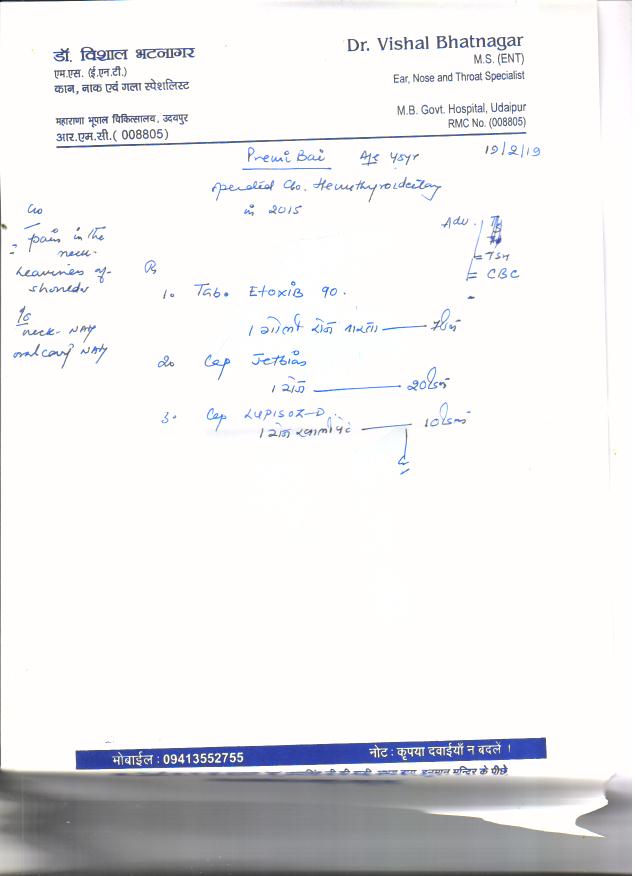 डॉ. विशाल भटनागर
एम.एस. (ई.एन.टी.)
कान, नाक एवं गला स्पेशलिस्ट
महाराणा भूपाल चिकित्सालय, उदयपुर
आर.एम.सी.( 008805)
Dr. Vishal Bhatnagar
M.S. (ENT)
Ear, Nose and Throat Specialist
M.B. Govt. Hospital, Udaipur
RMC No. (008805)
Premi Bai 45yr 19/2/19
operated C/o. Hemithyroidectomy
in 2015
C/o
pain in the
neck
heaviness of
neck- NAY
oral cavity NAY
Adv.
= TSH
= CBC
Rx
1. Tab. EtoxiB 90.
1 गोली रोज
2. Cap Jetbias
1 रोज 20
3. Cap LUPISOZ-D.
1 रोज खाली पेट 10
मोबाईल : 09413552755
नोट : कृपया दवाईयाँ न बदले !
हनुमान मन्दिर के पीछे